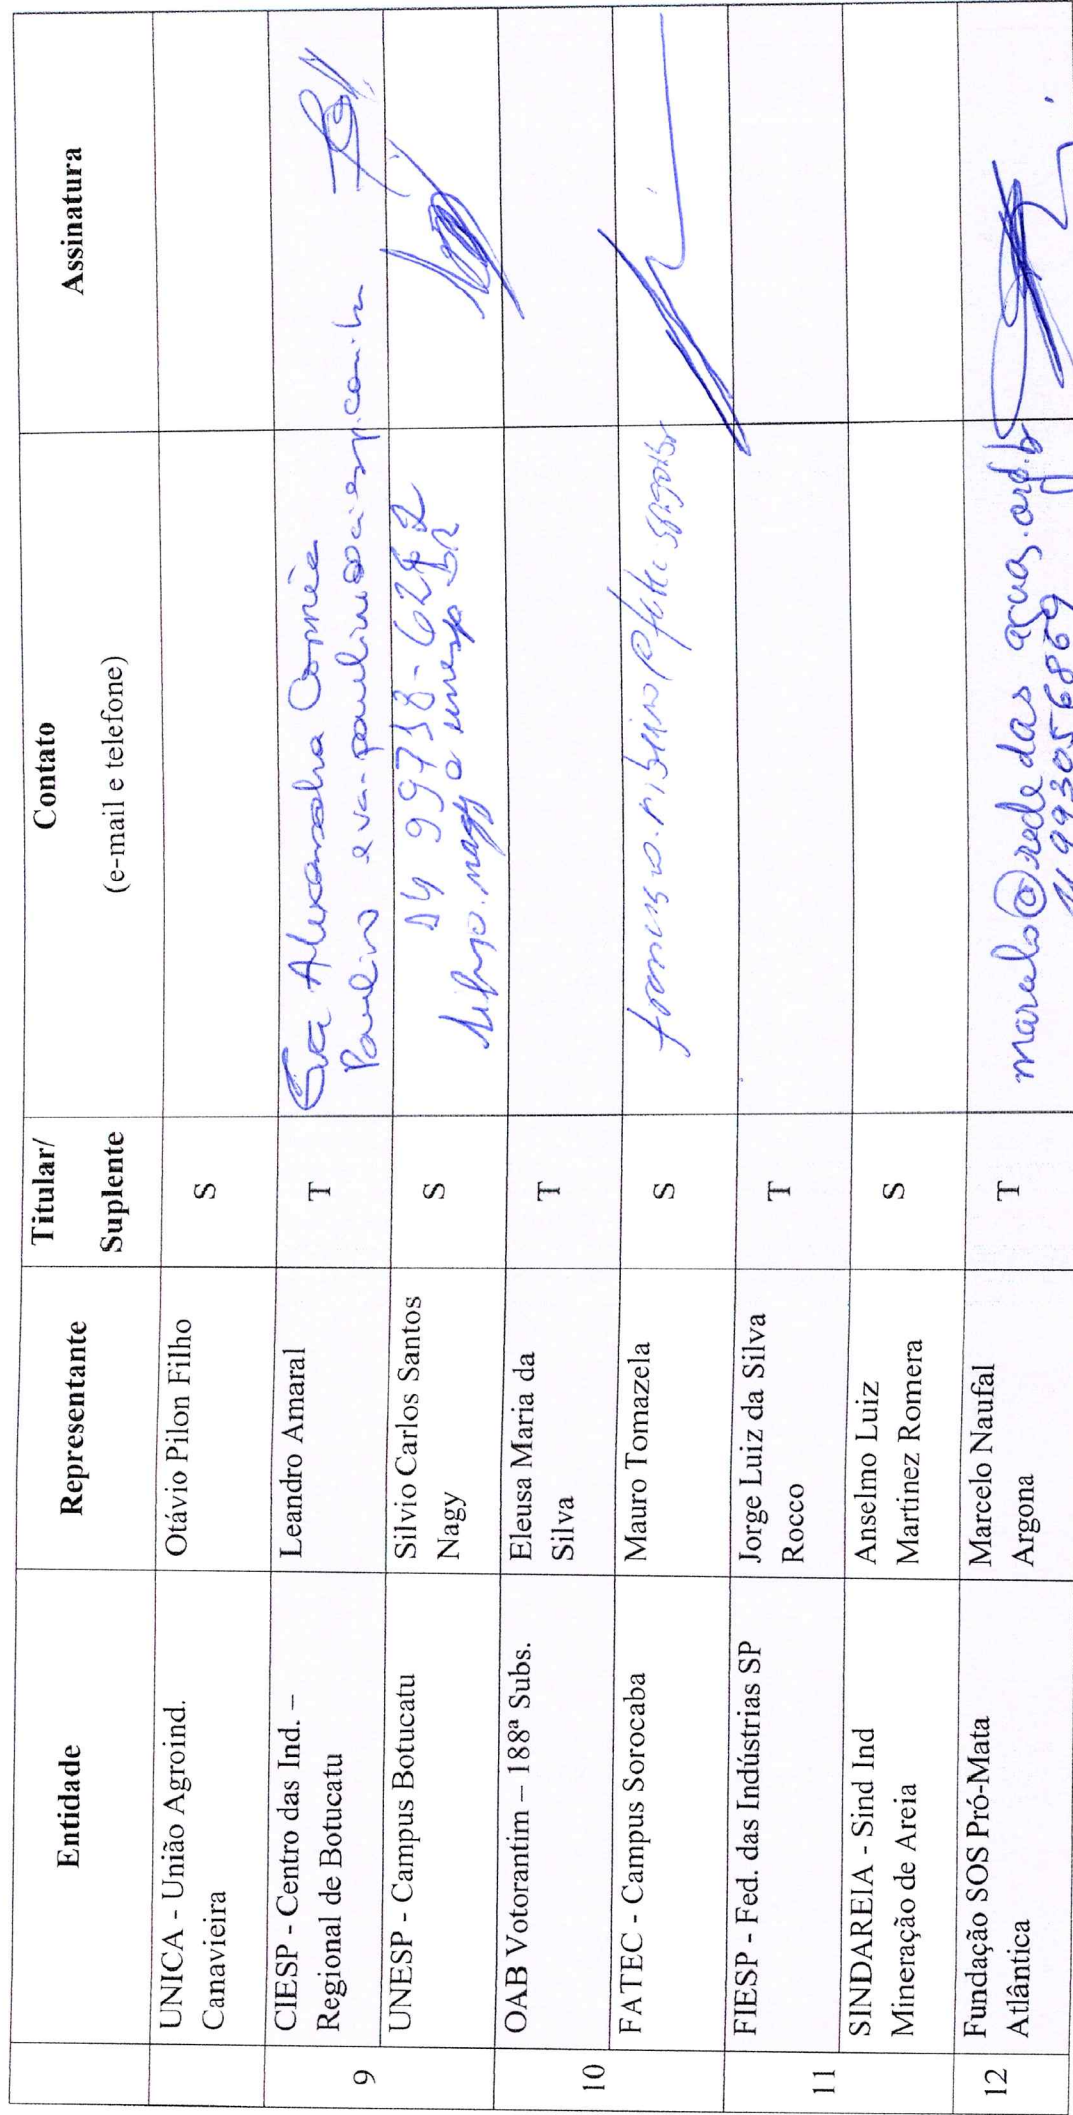 Entidade
Representante
Titular/
Suplente
Contato
(e-mail e telefone)
Assinatura
UNICA - União Agroind.
Canavieira
Otávio Pilon Filho
S
9
CIESP - Centro das Ind. –
Regional de Botucatu
Leandro Amaral
T
Eva Alexandra Corrêa
Paulino eva-paulino@ciesp.com.br
UNESP - Campus Botucatu
Silvio Carlos Santos
Nagy
S
silvio.nagy@unesp.br
10
OAB Votorantim – 188ª Subs.
Eleusa Maria da
Silva
T
FATEC - Campus Sorocaba
Mauro Tomazela
S
11
FIESP - Fed. das Indústrias SP
Jorge Luiz da Silva
Rocco
T
SINDAREIA - Sind Ind
Mineração de Areia
Anselmo Luiz
Martinez Romera
S
12
Fundação SOS Pró-Mata
Atlântica
Marcelo Naufal
Argona
T
marcelo@rededas aguas.org.b
11 993056869